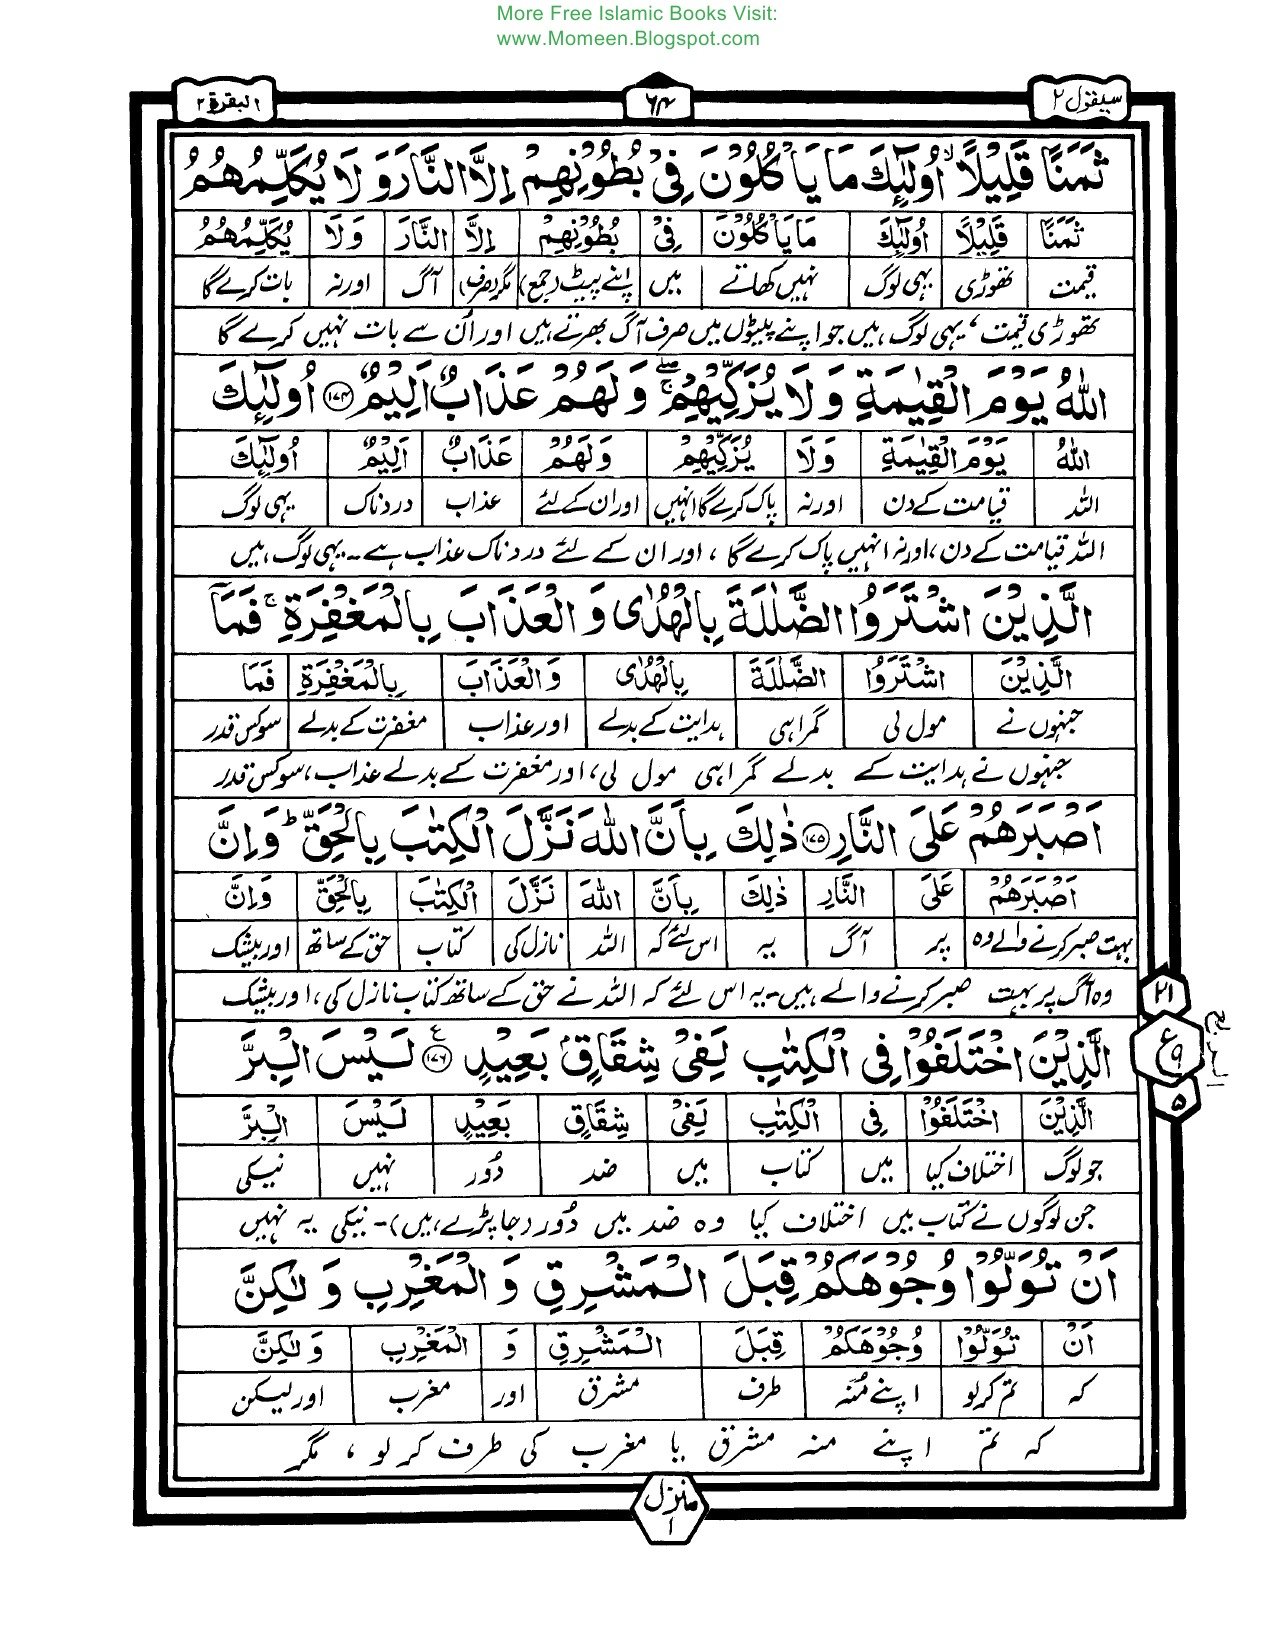 More Free Islamic Books Visit:
www.Momeen.Blogspot.com
سیقول ۲
۶۴
البقرة ۲
ثَمَنًا قَلِيْلًا ۙ اُولٰٓئِكَ مَا يَاْكُلُوْنَ فِيْ بُطُوْنِهِمْ اِلَّا النَّارَ وَ لَا يُكَلِّمُهُمُ
ثَمَنًا قَلِيْلًا اُولٰٓئِكَ مَا يَاْكُلُوْنَ فِيْ بُطُوْنِهِمْ اِلَّا النَّارَ وَلَا يُكَلِّمُهُمُ
قیمت تھوڑی یہی لوگ نہیں کھاتے میں اپنے پیٹ (جمع) مگر (صرف) آگ اور نہ بات کرے گا
تھوڑی قیمت، یہی لوگ ہیں جو اپنے پیٹوں میں صرف آگ بھرتے ہیں اور اُن سے بات نہیں کرے گا
اللّٰهُ يَوْمَ الْقِيٰمَةِ وَ لَا يُزَكِّيْهِمْ ۖۚ وَ لَهُمْ عَذَابٌ اَلِيْمٌ ﴿۱۷۴﴾ اُولٰٓئِكَ
اللّٰهُ يَوْمَ الْقِيٰمَةِ وَلَا يُزَكِّيْهِمْ وَلَهُمْ عَذَابٌ اَلِيْمٌ اُولٰٓئِكَ
اللہ قیامت کے دن اور نہ پاک کرے گا انہیں اور ان کے لئے عذاب دردناک یہی لوگ
اللہ قیامت کے دن، اور نہ انہیں پاک کرے گا، اور ان کے لئے دردناک عذاب ہے۔ یہی لوگ ہیں
الَّذِيْنَ اشْتَرَوُا الضَّلٰلَةَ بِالْهُدٰى وَ الْعَذَابَ بِالْمَغْفِرَةِ ۚ فَمَآ
الَّذِيْنَ اشْتَرَوُا الضَّلٰلَةَ بِالْهُدٰى وَالْعَذَابَ بِالْمَغْفِرَةِ فَمَا
جنہوں نے مول لی گمراہی ہدایت کے بدلے اور عذاب مغفرت کے بدلے سو کس قدر
جنہوں نے ہدایت کے بدلے گمراہی مول لی، اور مغفرت کے بدلے عذاب، سو کس قدر
اَصْبَرَهُمْ عَلَى النَّارِ ﴿۱۷۵﴾ ذٰلِكَ بِاَنَّ اللّٰهَ نَزَّلَ الْكِتٰبَ بِالْحَقِّ ؕ وَ اِنَّ
اَصْبَرَهُمْ عَلَى النَّارِ ذٰلِكَ بِاَنَّ اللّٰهَ نَزَّلَ الْكِتٰبَ بِالْحَقِّ وَاِنَّ
بہت صبر کرنے والے وہ پر آگ یہ اس لئے کہ اللہ نازل کی کتاب حق کے ساتھ اور بیشک
وہ آگ پر بہت صبر کرنے والے ہیں۔ یہ اس لئے کہ اللہ نے حق کے ساتھ کتاب نازل کی، اور بیشک
الَّذِيْنَ اخْتَلَفُوْا فِى الْكِتٰبِ لَفِيْ شِقَاقٍۭ بَعِيْدٍ ﴿۱۷۶﴾ ع لَيْسَ الْبِرَّ
الَّذِيْنَ اخْتَلَفُوْا فِى الْكِتٰبِ لَفِيْ شِقَاقٍ بَعِيْدٍ لَيْسَ الْبِرَّ
جو لوگ اختلاف کیا میں کتاب میں ضد دُور نہیں نیکی
جن لوگوں نے کتاب میں اختلاف کیا وہ ضد میں دُور (جا پڑے ہیں)۔ نیکی یہ نہیں
اَنْ تُوَلُّوْا وُجُوْهَكُمْ قِبَلَ الْمَشْرِقِ وَ الْمَغْرِبِ وَ لٰكِنَّ
اَنْ تُوَلُّوْا وُجُوْهَكُمْ قِبَلَ الْمَشْرِقِ وَ الْمَغْرِبِ وَلٰكِنَّ
کہ تم کرلو اپنے مُنہ طرف مشرق اور مغرب اور لیکن
کہ تم اپنے منہ مشرق یا مغرب کی طرف کر لو، مگر
۲۱
ع ۹
۵
الربع
منزل ۱